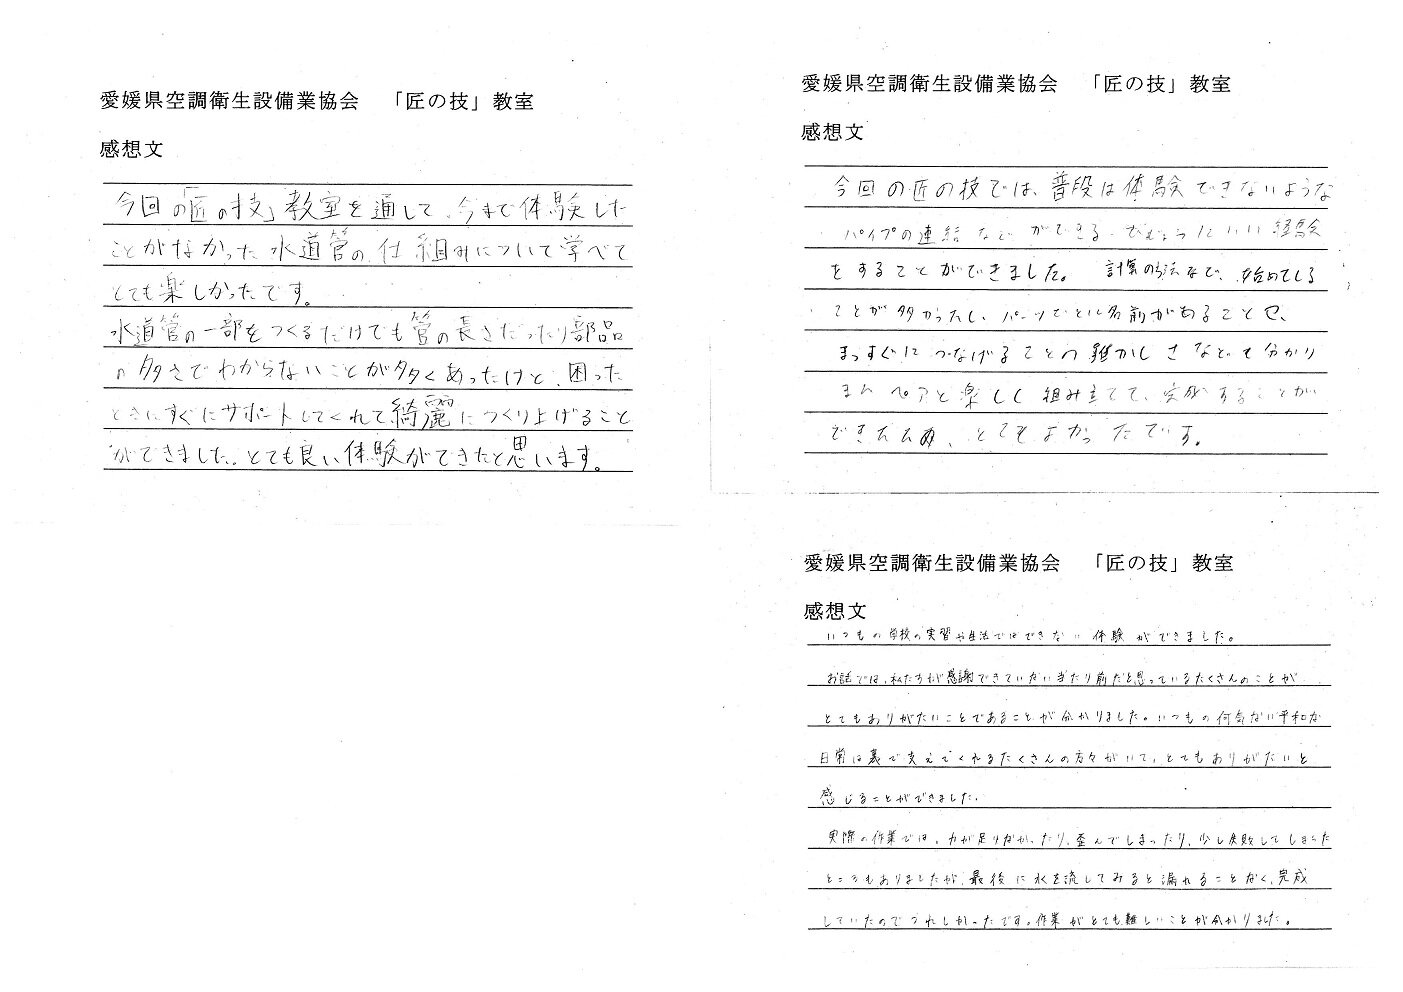 愛媛県空調衛生設備業協会　「匠の技」教室
感想文
今回の「匠の技」教室を通して、今まで体験した
ことがなかった水道管の仕組みについて学べて
とても楽しかったです。
水道管の一部をつくるだけでも管の長さだったり部品
の多さでわからないことが多くあったけど、困った
ときにすぐにサポートしてくれて綺麗につくり上げること
ができました。とても良い体験ができたと思います。
愛媛県空調衛生設備業協会　「匠の技」教室
感想文
今回の匠の技では、普段は体験できないような
パイプの連結などができる ひじょうにいい経験
をすることができました。 計算の方法など、始めてしる
ことが多かったし、パーツごとに名前があることや、
まっすぐにつなげることの難かしさなども分かり
ペアと楽しく組み立てて、完成することが
できたため、とてもよかったです。
愛媛県空調衛生設備業協会　「匠の技」教室
感想文
いつもの学校の実習や生活ではできない体験ができました。
お話では、私たちが感謝できていない当たり前だと思っているたくさんのことが
とてもありがたいことであることが分かりました。いつもの何気ない平和な
日常は裏で支えてくれるたくさんの方々がいて、とてもありがたいと
感じることができました。
実際の作業では、力が足りなかったり、歪んでしまったり、少し失敗してしまった
ところもありましたが、最後に水を流してみると漏れることなく、完成
していたのでうれしかったです。作業がとても難しいことが分かりました。